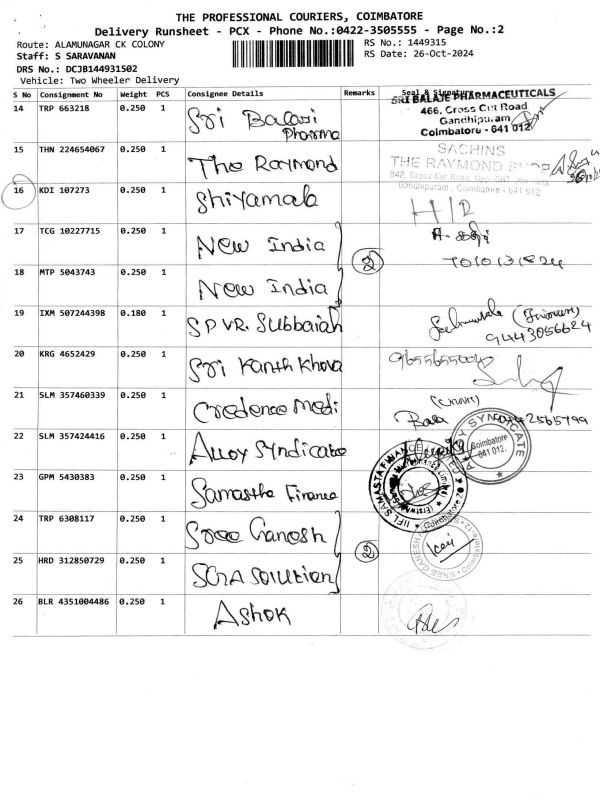 THE PROFESSIONAL COURIERS, COIMBATORE
Delivery Runsheet - PCX - Phone No.:0422-3505555 - Page No.:2
Route: ALAMUNAGAR CK COLONY
RS No.: 1449315
Staff: S SARAVANAN
RS Date: 26-Oct-2024
DRS No.: DCJB144931502
Vehicle: Two Wheeler Delivery
S No Consignment No Weight PCS Consignee Details Remarks Seal & Signature
14 TRP 663218 0.250 1 Sri Balaji Pharma
SRI BALAJE PHARMACEUTICALS
466, Cross Cut Road
Gandhipuram
Coimbatore - 641 012
15 THN 224654067 0.250 1 The Raymond
SACHINS
THE RAYMOND SHOP
842, Cross Cut Road, Opp. GHT
Gandhipuram, Coimbatore - 641 012
16 KDI 107273 0.250 1 Shiyamala
H/R
17 TCG 10227715 0.250 1 New India
2
18 MTP 5043743 0.250 1 New India
19 IXM 507244398 0.180 1 SPVR. Subbaiah
9443056624
20 KRG 4652429 0.250 1 Sri Kanth Khova
21 SLM 357460339 0.250 1 Credence Medi
22 SLM 357424416 0.250 1 Alloy Syndicate
ALLOY SYNDICATE
Coimbatore
641 012.
23 GPM 5430383 0.250 1 Samastha Finance
IIFL SAMASTA FINANCE LIMITED
Coimbatore
24 TRP 6308117 0.250 1 Sree Ganesh
2
SREE GANESH
Coimbatore
25 HRD 312850729 0.250 1 Solution
26 BLR 4351004486 0.250 1 Ashok